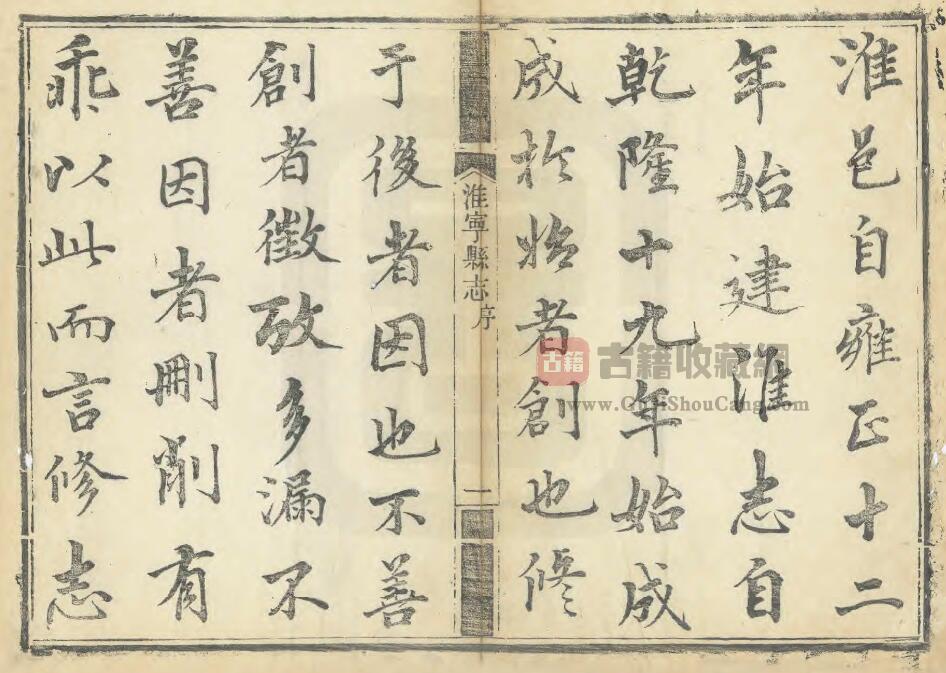 淮邑自雍正十二
年始建淮志自
乾隆十九年始成
成於始者創也修
淮寧縣志
序
一
于後者因也不善
創者徵攷多漏不
善因者刪削有
乖以此而言修志
古籍
古籍收藏網
www.GujiShouCang.com